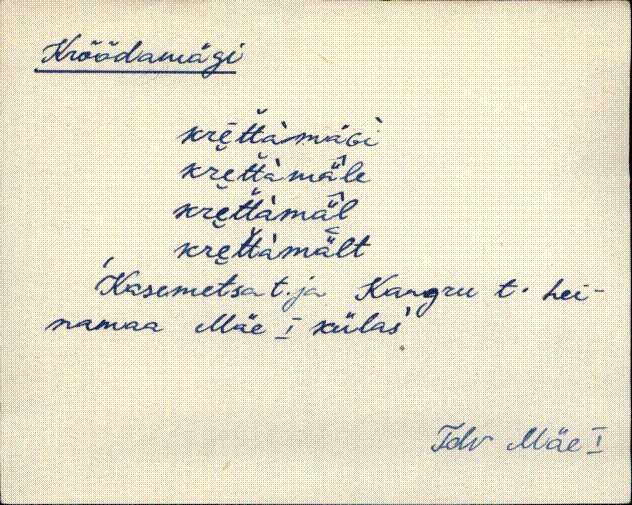 Krõõdamägi
krẹ̄ttàmäɢì
krẹttàmä̂le
krẹttàmä̂l
krẹttàmä̂lt
'Kasemetsa t. ja Kangru t. hei-
namaa Mäe I külas'
Jdv Mäe I